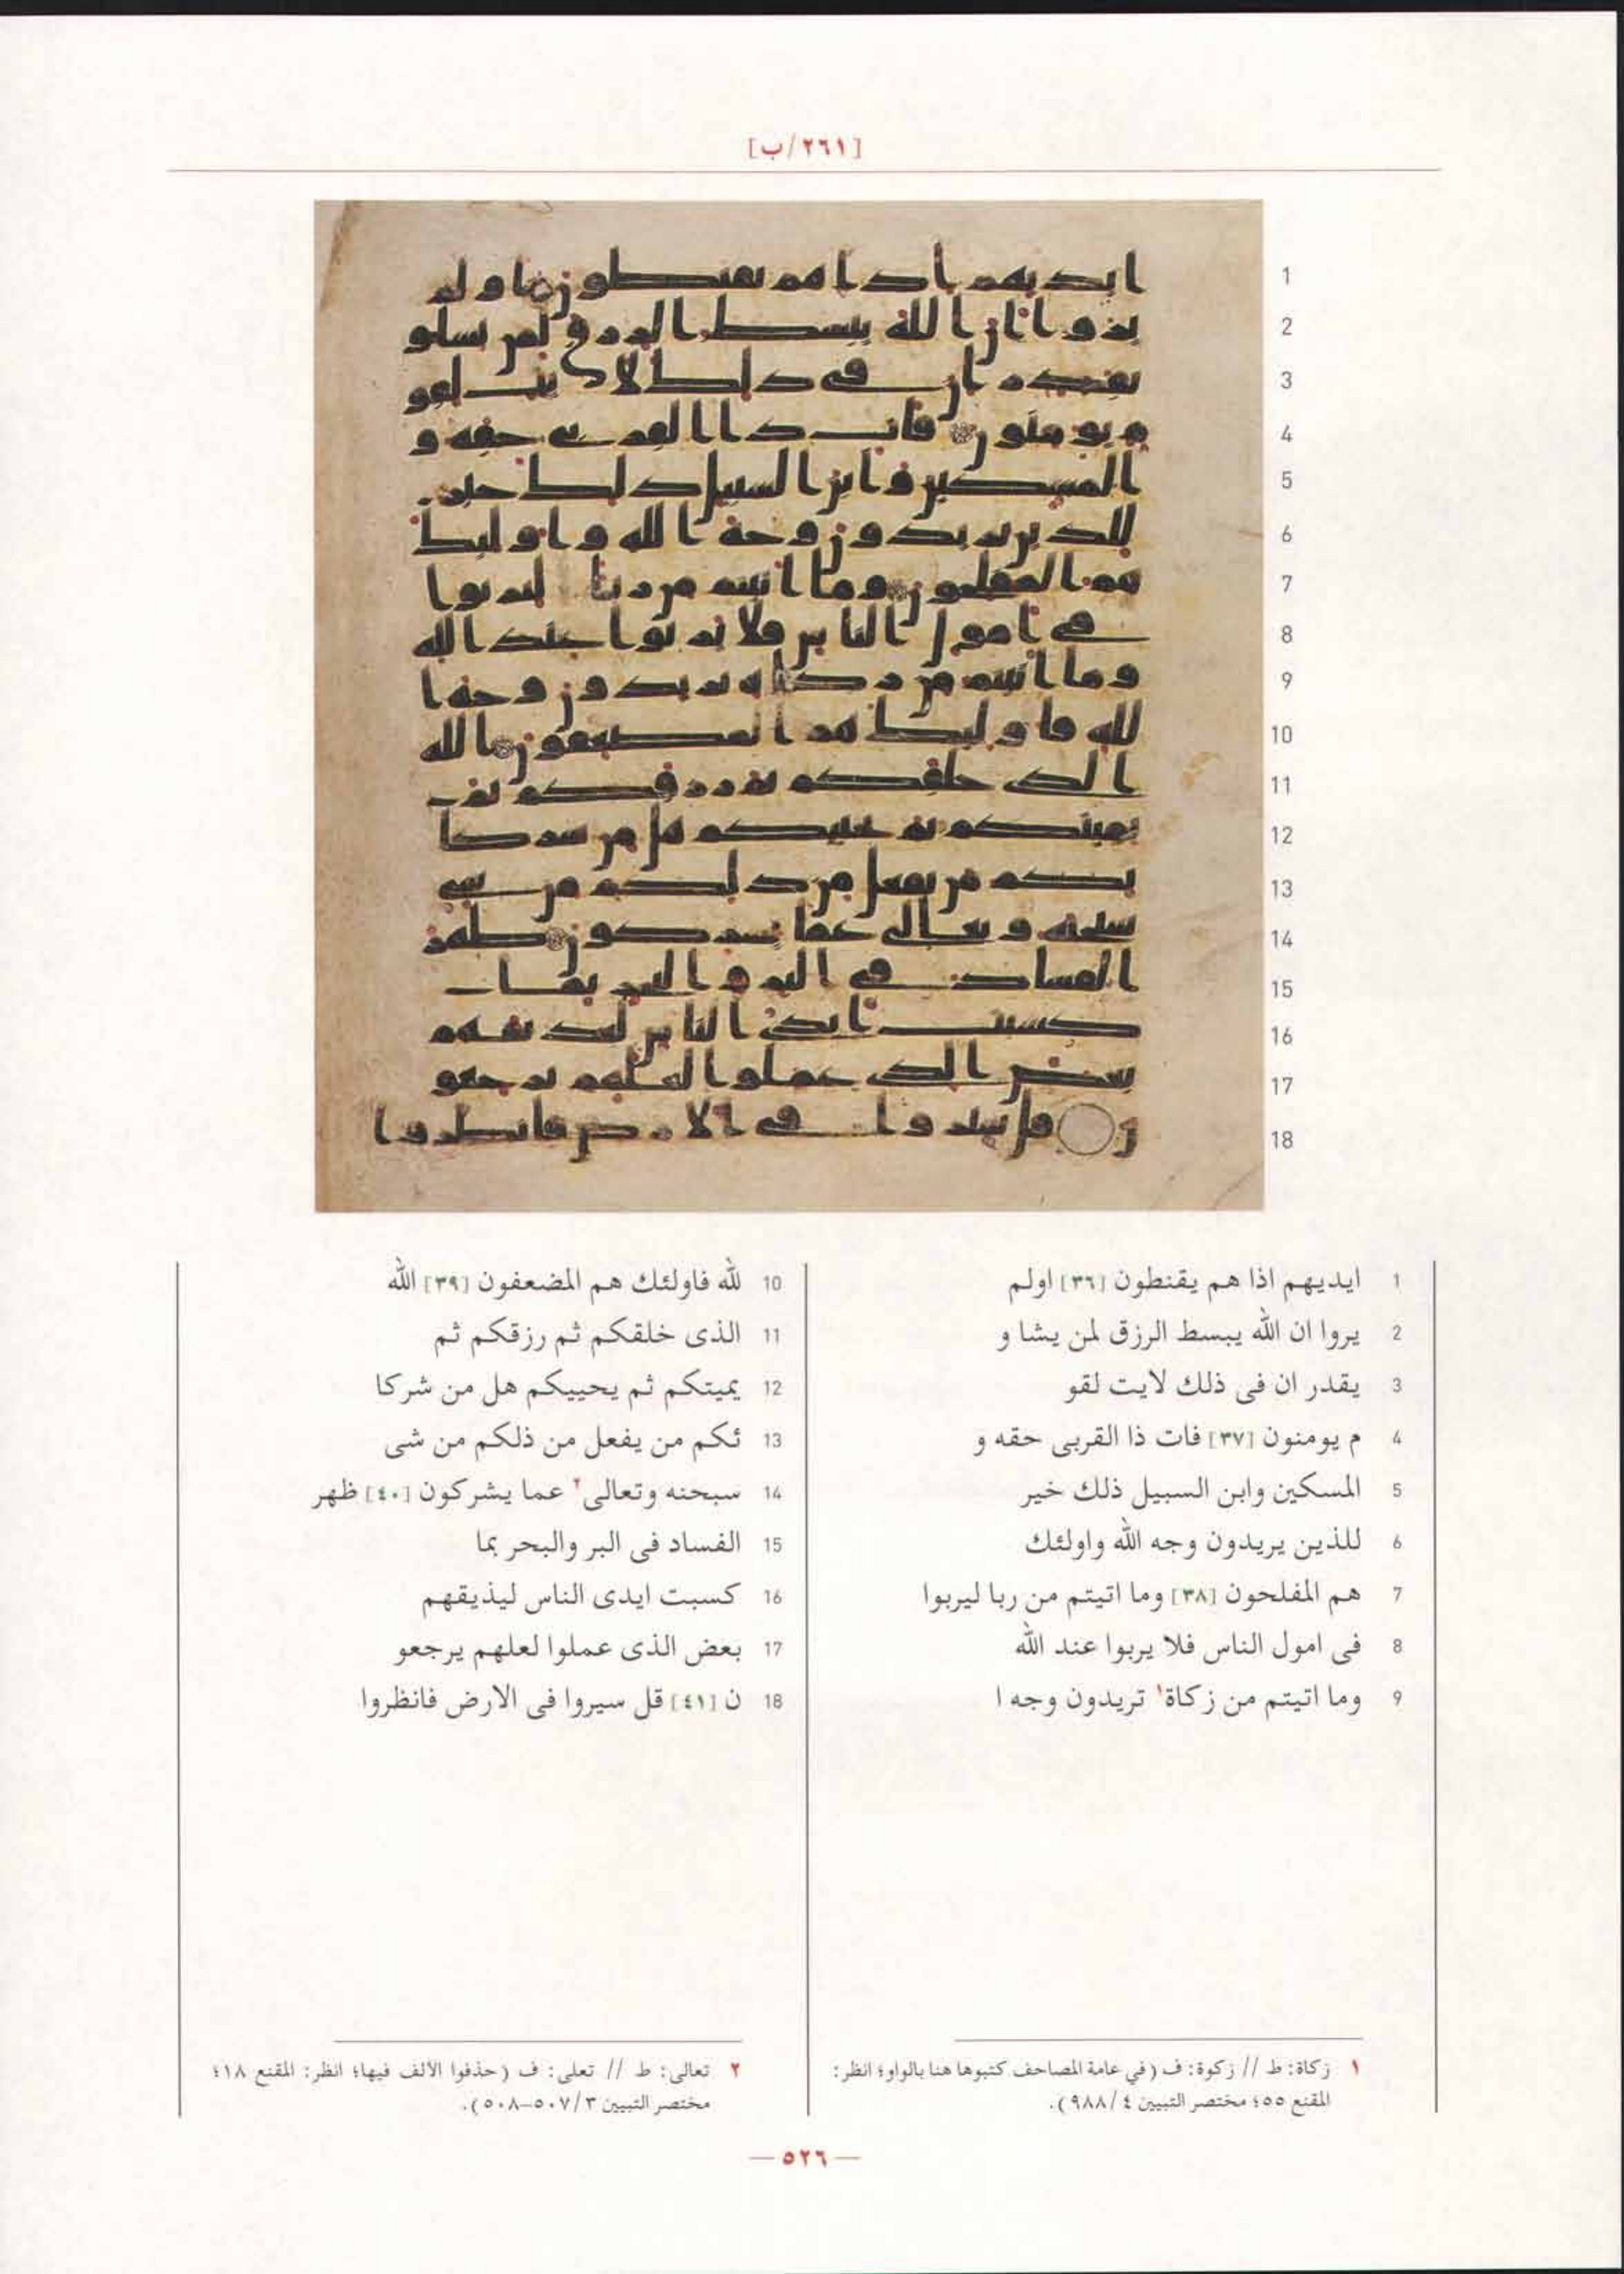 [٢٦١/ب]
1
2
3
4
5
6
7
8
9
10
11
12
13
14
15
16
17
18
1 ايديهم اذا هم يقنطون [٣٦] اولم
2 يروا ان الله يبسط الرزق لمن يشا و
3 يقدر ان فى ذلك لايت لقو
4 م يومنون [٣٧] فات ذا القربى حقه و
5 المسكين وابن السبيل ذلك خير
6 للذين يريدون وجه الله واولئك
7 هم المفلحون [٣٨] وما اتيتم من ربا ليربوا
8 فى امول الناس فلا يربوا عند الله
9 وما اتيتم من زكاة١ تريدون وجه ا
10 لله فاولئك هم المضعفون [٣٩] الله
11 الذى خلقكم ثم رزقكم ثم
12 يميتكم ثم يحييكم هل من شركا
13 ئكم من يفعل من ذلكم من شى
14 سبحنه وتعالى٢ عما يشركون [٤٠] ظهر
15 الفساد فى البر والبحر بما
16 كسبت ايدى الناس ليذيقهم
17 بعض الذى عملوا لعلهم يرجعو
18 ن [٤١] قل سيروا فى الارض فانظروا
١ زكاة: ط // زكوة: ف (في عامة المصاحف كتبوها هنا بالواو؛ انظر:
المقنع ٥٥؛ مختصر التبيين ٤/٩٨٨).
٢ تعالى: ط // تعلى: ف (حذفوا الألف فيها؛ انظر: المقنع ١٨؛
مختصر التبيين ٣/٥٠٧–٥٠٨).
— ٥٢٦ —